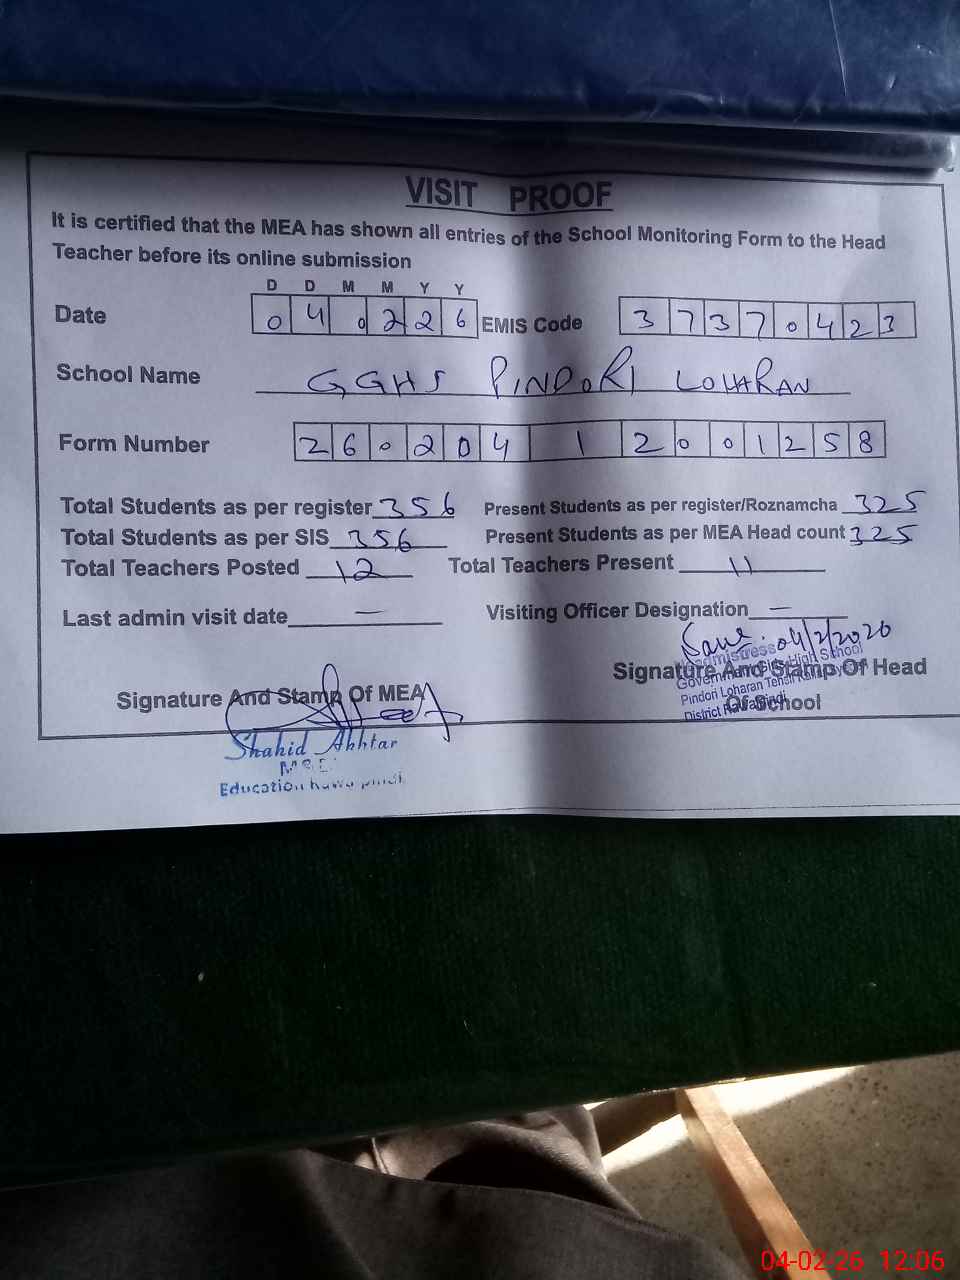 VISIT PROOF
It is certified that the MEA has shown all entries of the School Monitoring Form to the Head
Teacher before its online submission
D D M M Y Y
Date 0 4 0 2 2 6 EMIS Code 3 7 3 7 0 4 2 3
School Name GGHS PINDORI LOHARAN
Form Number 2 6 0 2 0 4 1 2 0 0 1 2 5 8
Total Students as per register 356 Present Students as per register/Roznamcha 325
Total Students as per SIS 356 Present Students as per MEA Head count 325
Total Teachers Posted 12 Total Teachers Present 11
Last admin visit date — Visiting Officer Designation —
04/2/2026
Signature And Stamp Of Head
Of School
Headmistress
Government Girls High School
Pindori Loharan Tehsil
District Rawalpindi
Signature And Stamp Of MEA
Shahid Akhtar
Education Rawalpindi
04-02-26 12:06